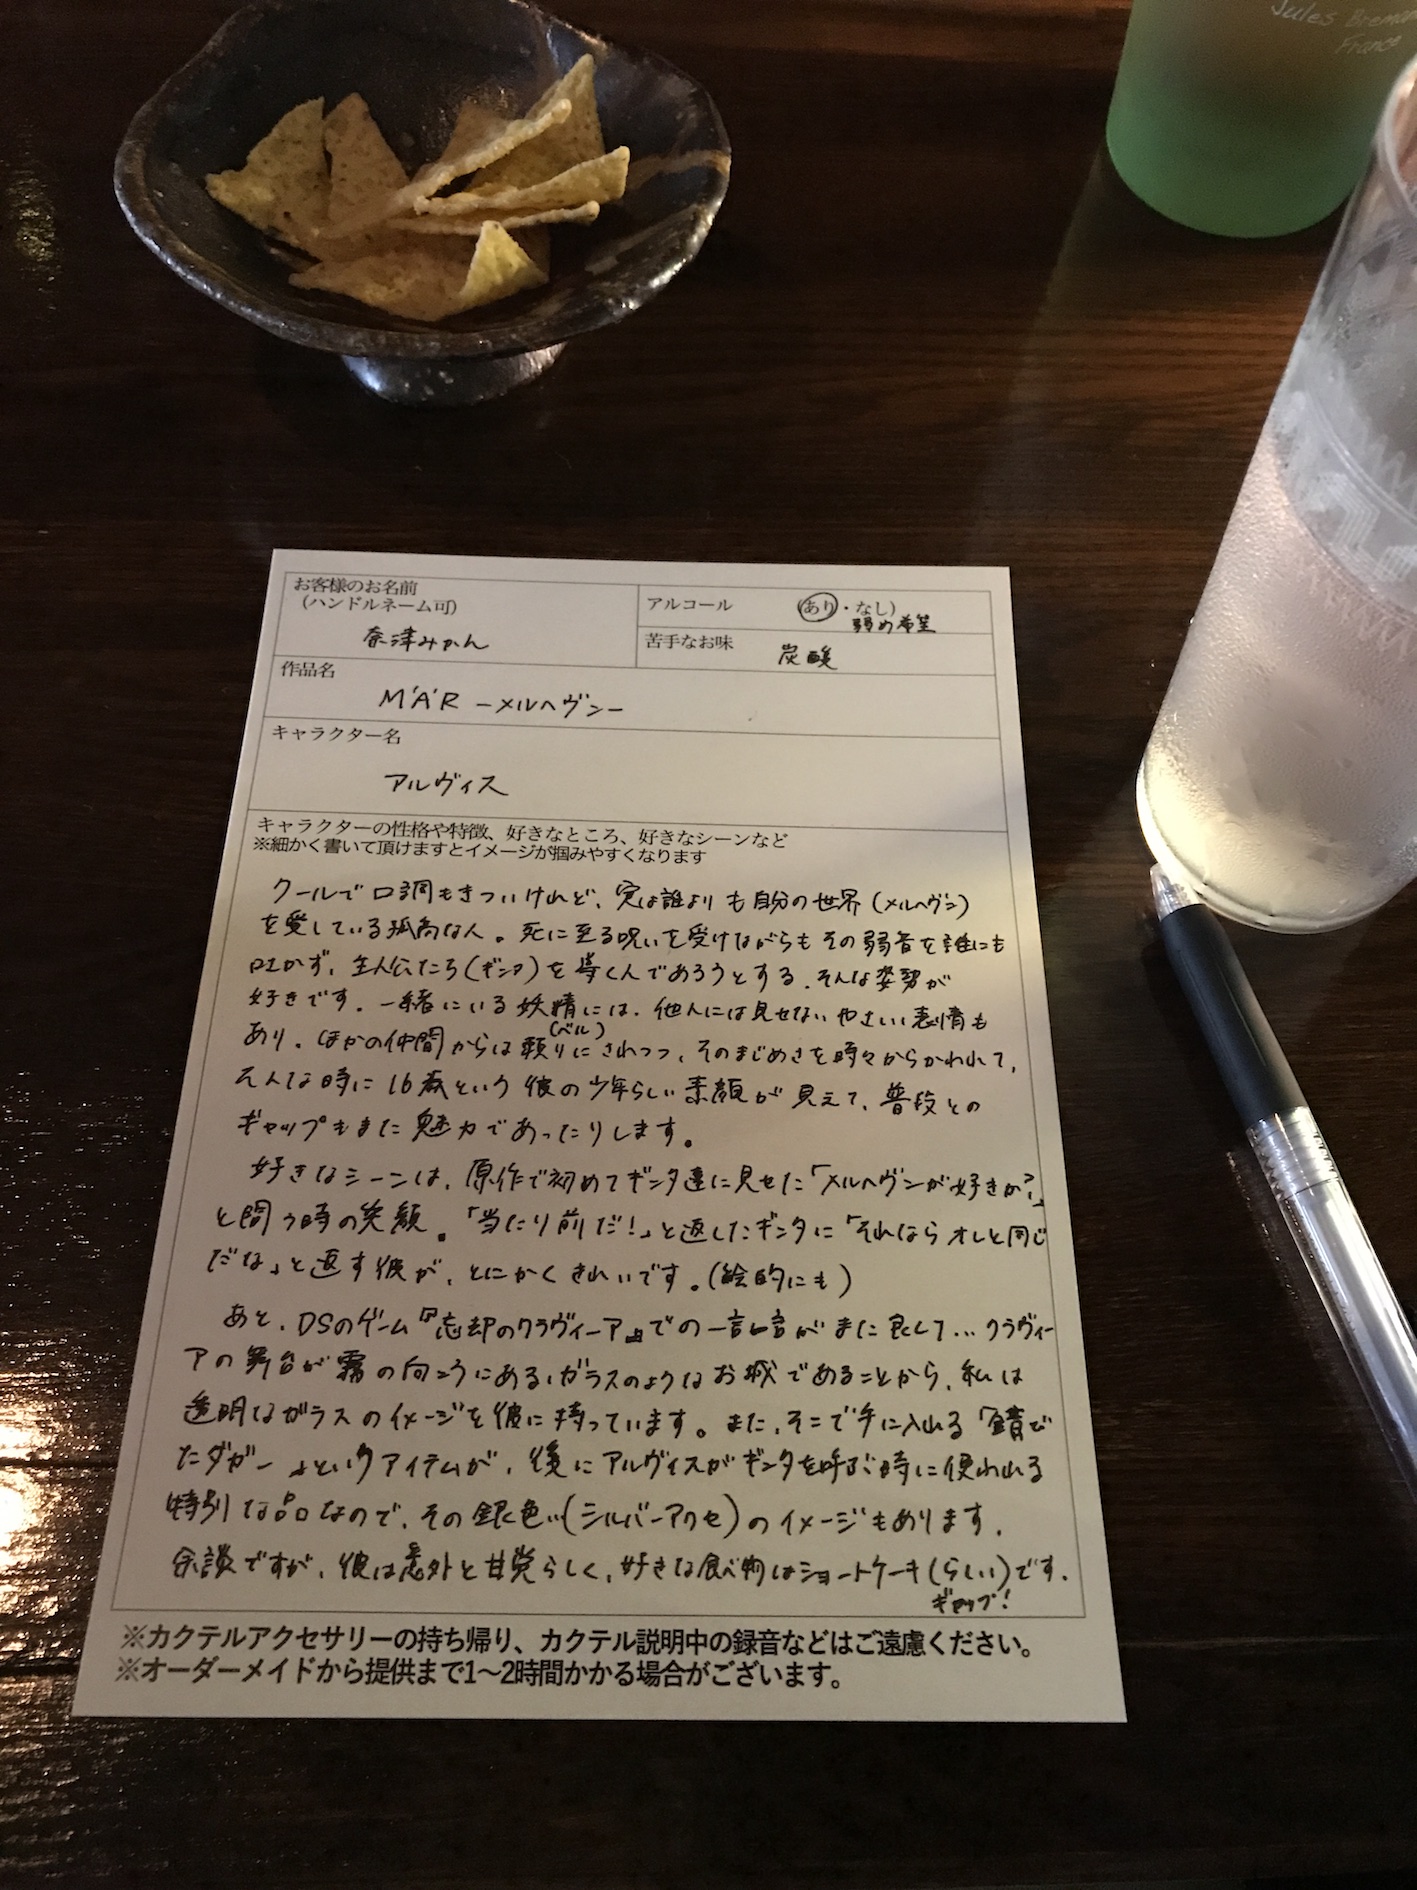 Jules Bremon
France
お客様のお名前
(ハンドルネーム可)
奈津みかん
アルコール (あり・なし)
弱め希望
苦手なお味 炭酸
作品名
MÄR ーメルヘヴンー
キャラクター名
アルヴィス
キャラクターの性格や特徴、好きなところ、好きなシーンなど
※細かく書いて頂けますとイメージが掴みやすくなります
クールで口調もきついけれど、実は誰よりも自分の世界(メルヘヴン)
を愛している孤高な人。死に至る呪いを受けながらもその弱音を誰にも
吐かず、主人公たち(ギンタ)を導く人であろうとする、そんな姿勢が
好きです。一緒にいる妖精には、他人には見せないやさしい表情も
(ベル)
あり。ほかの仲間からは頼りにされつつ、そのまじめさを時々からかわれて、
そんな時に16歳という彼の少年らしい素顔が見えて、普段との
ギャップもまた魅力であったりします。
好きなシーンは、原作で初めてギンタ達に見せた「メルヘヴンが好きか?」
と問う時の笑顔。「当たり前だ!」と返したギンタに「それならオレと同じ
だな」と返す彼が、とにかくきれいです。(絵的にも)
あと、DSのゲーム『忘却のクラヴィーア』での一言一言がまた良くて…クラヴィー
アの舞台が霧の向こうにあるガラスのようなお城であることから、私は
透明なガラスのイメージを彼に持っています。また、そこで手に入れる「錆び
たダガー」というアイテムが、後にアルヴィスがギンタを呼ぶ時に使われる
特別な品なので、その銀色い(シルバーアクセ)のイメージもあります。
余談ですが、彼は意外と甘党らしく、好きな食べ物はショートケーキ(らしい)です。
ギャップ!
※カクテルアクセサリーの持ち帰り、カクテル説明中の録音などはご遠慮ください。
※オーダーメイドから提供まで1〜2時間かかる場合がございます。